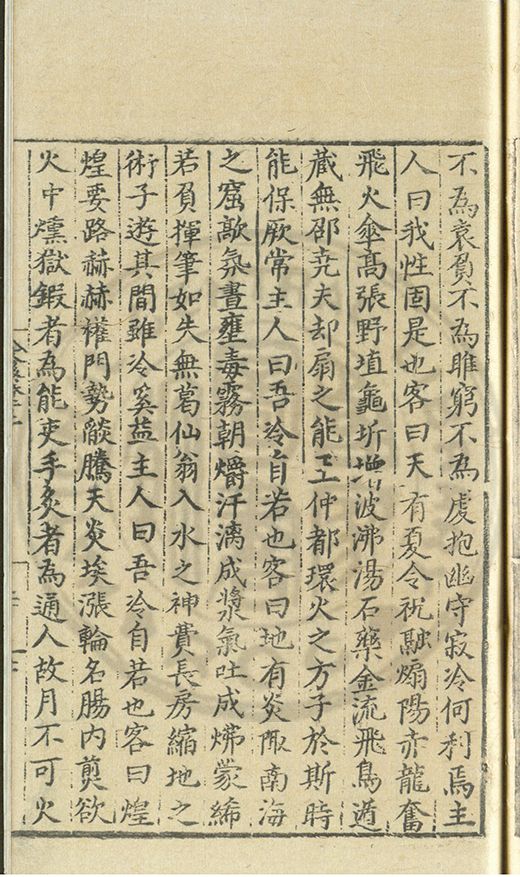 不為袁貧不為雎窮不為虔抱幽守寂冷何利焉主
人曰我性固是也客曰天有夏令祝融煽陽赤龍奮
飛火傘高張野埴龜坼增波沸湯石藥金流飛鳥遁
藏無邵尭夫却扇之能王仲都環火之方子於斯時
能保厥常主人曰吾冷自若也客曰地有炎陬南海
之窟歊氛晝壅毒霧朝爝汗漓成漿氣吐成炥蒙絺
若負揮筆如失無葛仙翁入水之神費長房縮地之
術子遊其間雖冷奚益主人曰吾冷自若也客曰煌
煌要路赫赫權門勢燄騰天炎埃漲輪名腸內煎欲
火中燻獄鍜者為能吏手炙者為通人故月不可火